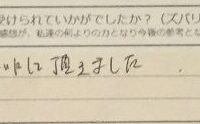 受けられていかがでしたか？（ズバリ
感想が、私達の何よりの力となり今後の参考とな
頂きました